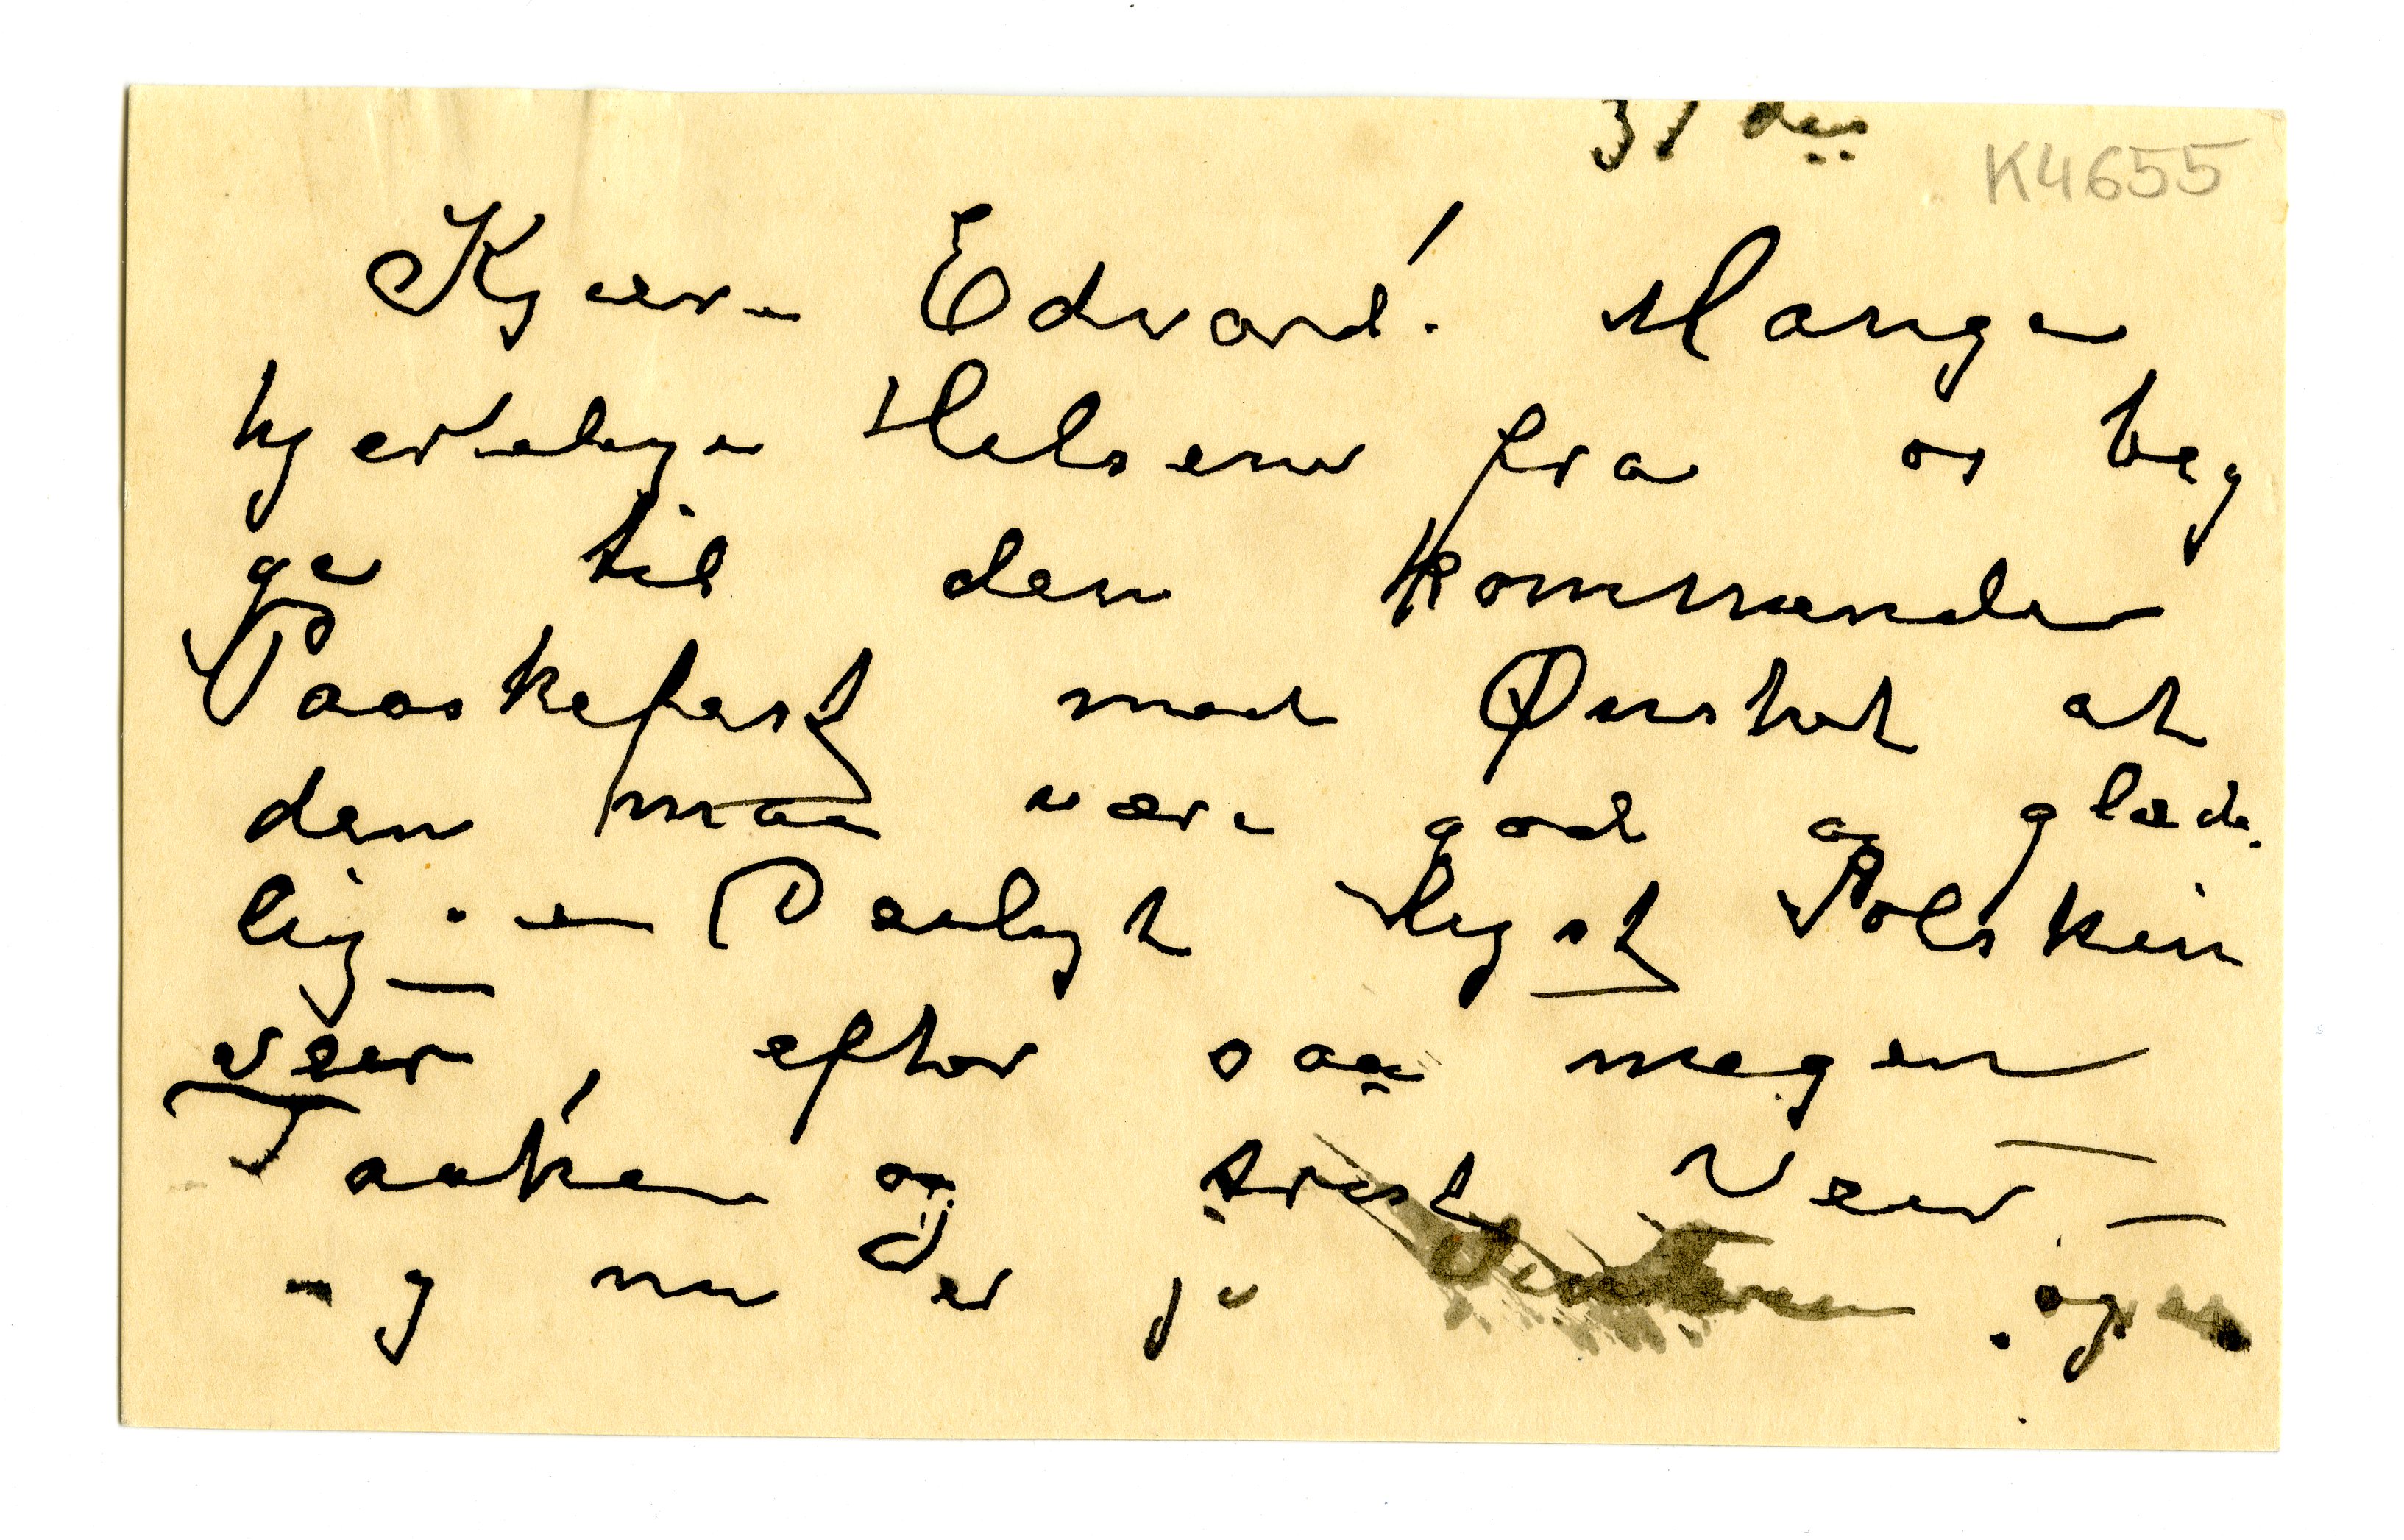 31 des
K4655
Kjære Edvard! Mange
hjertelige Helsener fra os beg
ge til den kommende
Paaskefest med Ønsket at
den maa være god og glæde.
lig. – Deiligt lyst Solskin
veer, efter saa megen
Taake og trist Veer –
og nu er jo Vinteren og